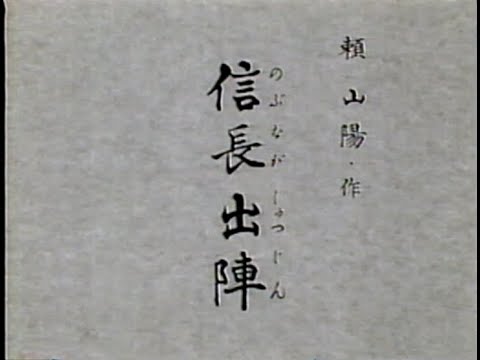 頼山陽・作
信長出陣
のぶながしゅつじん